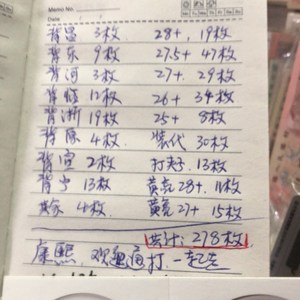 Memo No.
Date
背恩 3枚 28+, 19枚
背东 9枚 27.5+ 47枚
背河 3枚 27+. 29枚
背临 12枚 26+ 34枚
背浙 19枚 25+ 8枚
背陕 4枚. 装代 30枚
背宣 2枚 打夹. 13枚
背宁 13枚 黄亮28+. 11枚
黄 4枚. 黄亮27+ 15枚
共计: 278枚
康熙. 欢迎通打 一起走